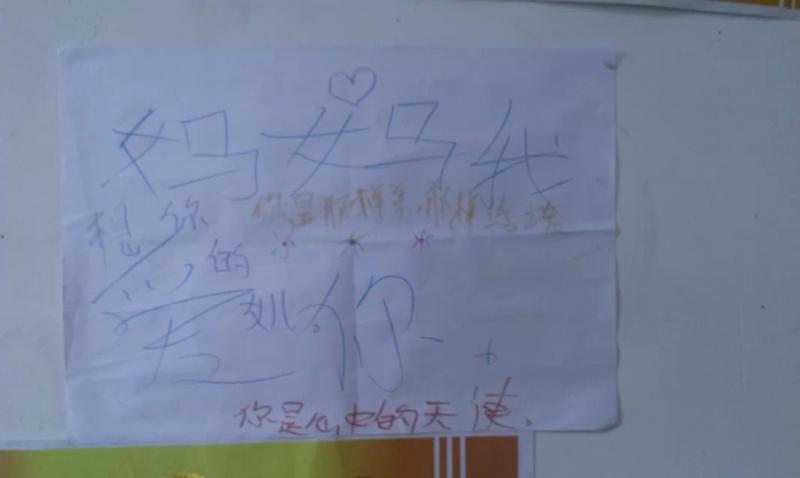 妈妈我
你是那样美,那样
想你
的
女儿
爱你
你是心中的天使.